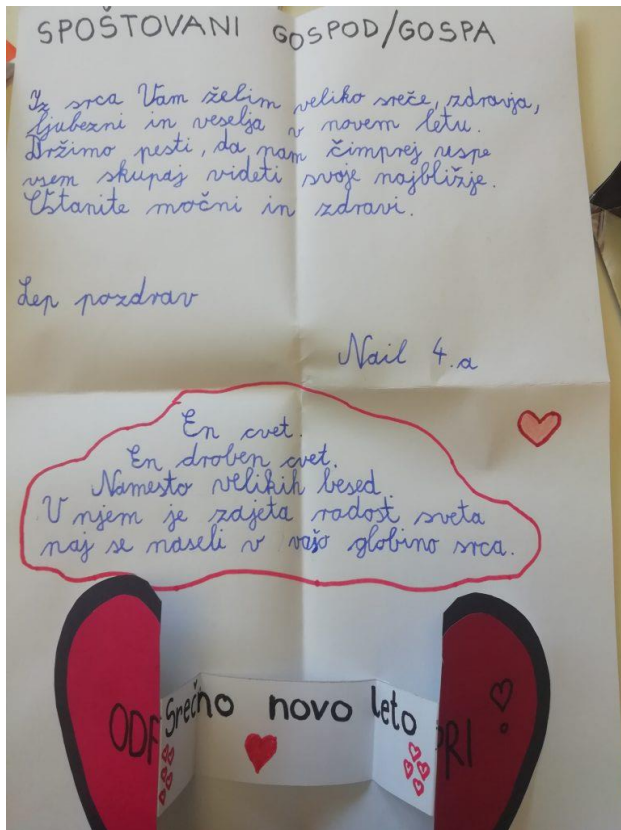 SPOŠTOVANI GOSPOD/GOSPA
Iz srca Vam želim veliko sreče, zdravja,
ljubezni in veselja v novem letu.
Držimo pesti, da nam čimprej uspe
vsem skupaj videti svoje najbližje.
Ostanite močni in zdravi.
Lep pozdrav
Nail 4.a
En cvet.
En droben cvet.
Namesto velikih besed.
V njem je zajeta radost sveta
naj se naseli v vašo globino srca.
Srečno novo leto
ODP PRI